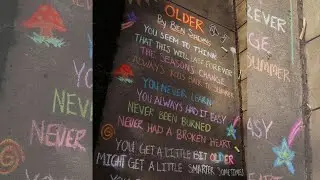 OLDER
By Ben Sauls
YOU SEEM TO THINK
THAT THIS WILL LAST FOREVER
THE SEASONS CHANGE
ALWAYS KIDS
YOU NEVER LEARN
YOU ALWAYS HAD IT EASY
NEVER BEEN BURNED
NEVER HAD A BROKEN HEART
YOU GET A LITTLE BIT OLDER
MIGHT GET A LITTLE SMARTER SOMETIMES
NEVER
NEVER
REVER
GE
SUMMER
ASY